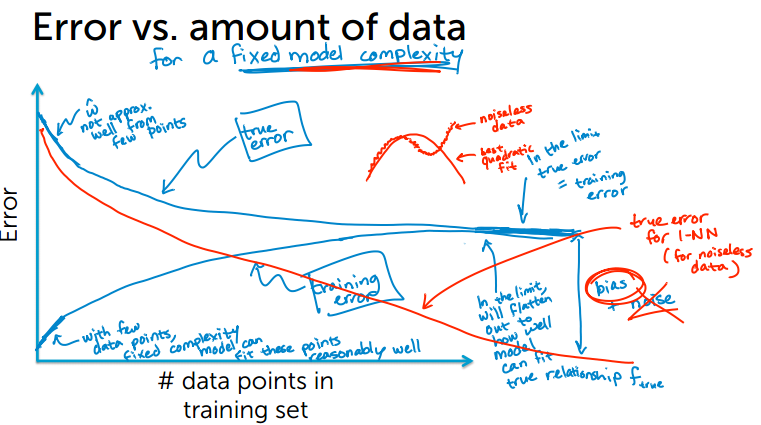 Error vs. amount of data
for a fixed model complexity
ŵ
not approx.
well from
few points
true
error
noiseless
data
best
quadratic
fit
In the limit
true error
= training
error
true error
for 1-NN
(for noiseless
data)
bias
+ noise
Error
training
error
In the limit,
will flatten
out to
how well
model
can fit
true relationship f true
with few
data points,
fixed complexity
model can
fit these points
reasonably well
# data points in
training set